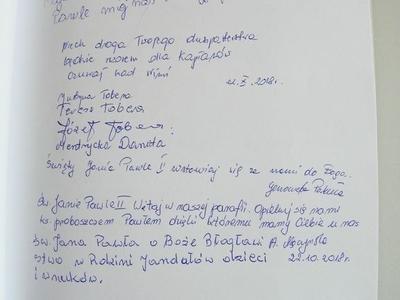 Pawle mój nas
niech droga Twojego duszpasterstwa
będzie wzorem dla kapłanów
czuwaj nad nimi
X. 2018r.
Tabera
Teresa Tabera
Józef Tabera
Danuta
Święty Janie Pawle II wstawiaj się za nami do Boga.
Genowefa
Św Janie Pawle II Witaj w naszej parafii. Opiekuj się nami
ks. proboszczem Pawłem dzięki któremu mamy Ciebie u nas
Św Jana Pawła o Boże Błogłani A.
stwo w Rodzini Jandałów dzieci 22.10.2018r.
i wnuków.